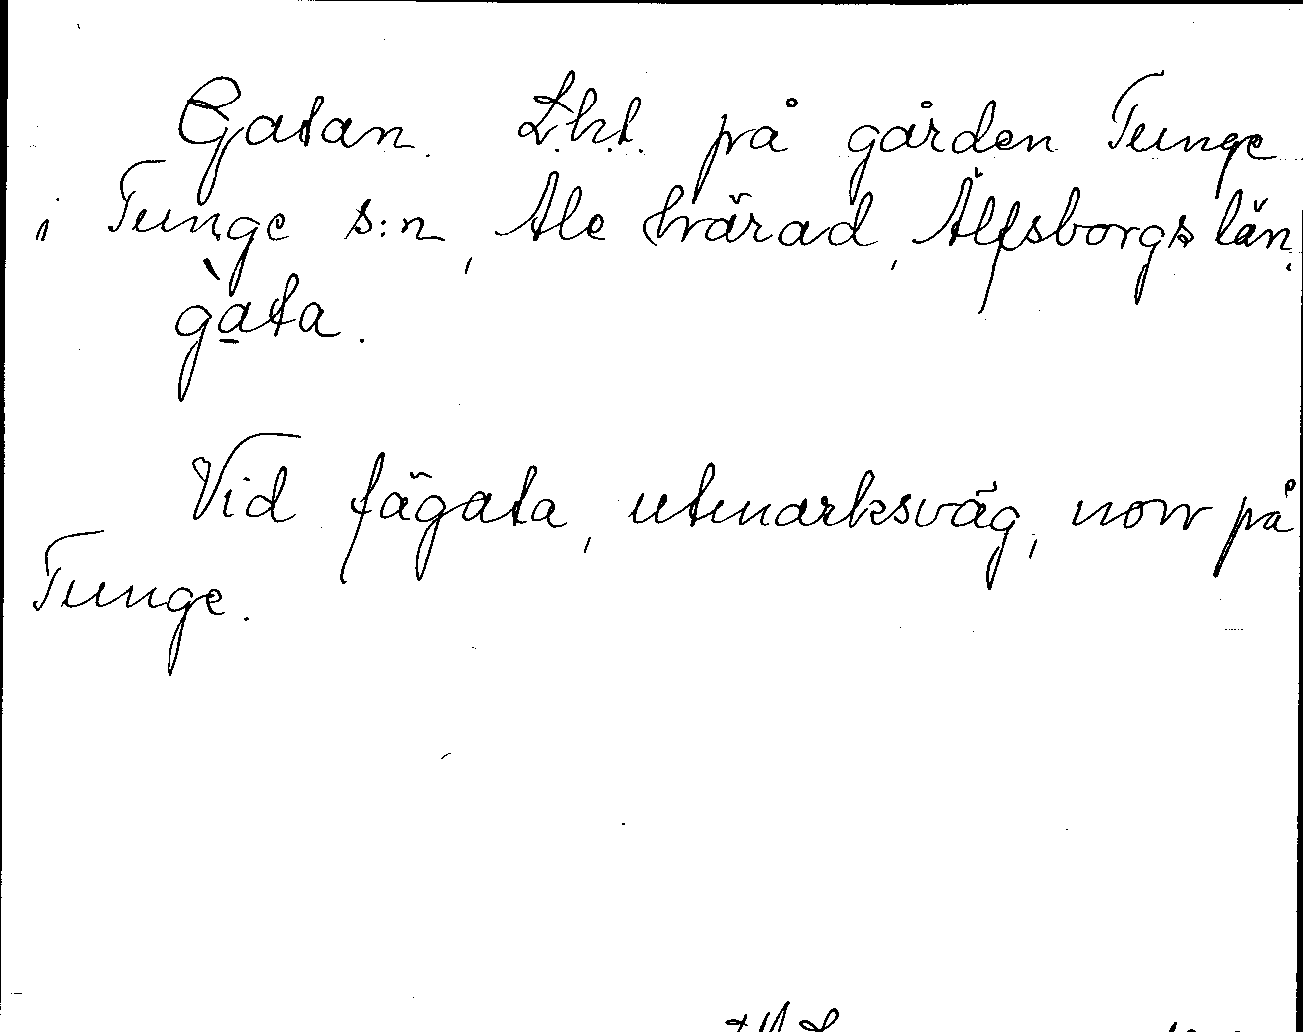 Gatan. L.h.t. på gården Tunge
i Tunge s:n, Ale härad, Älfsborgs län.
gàta.
Vid fägata, utmarksväg, norr på
Tunge.